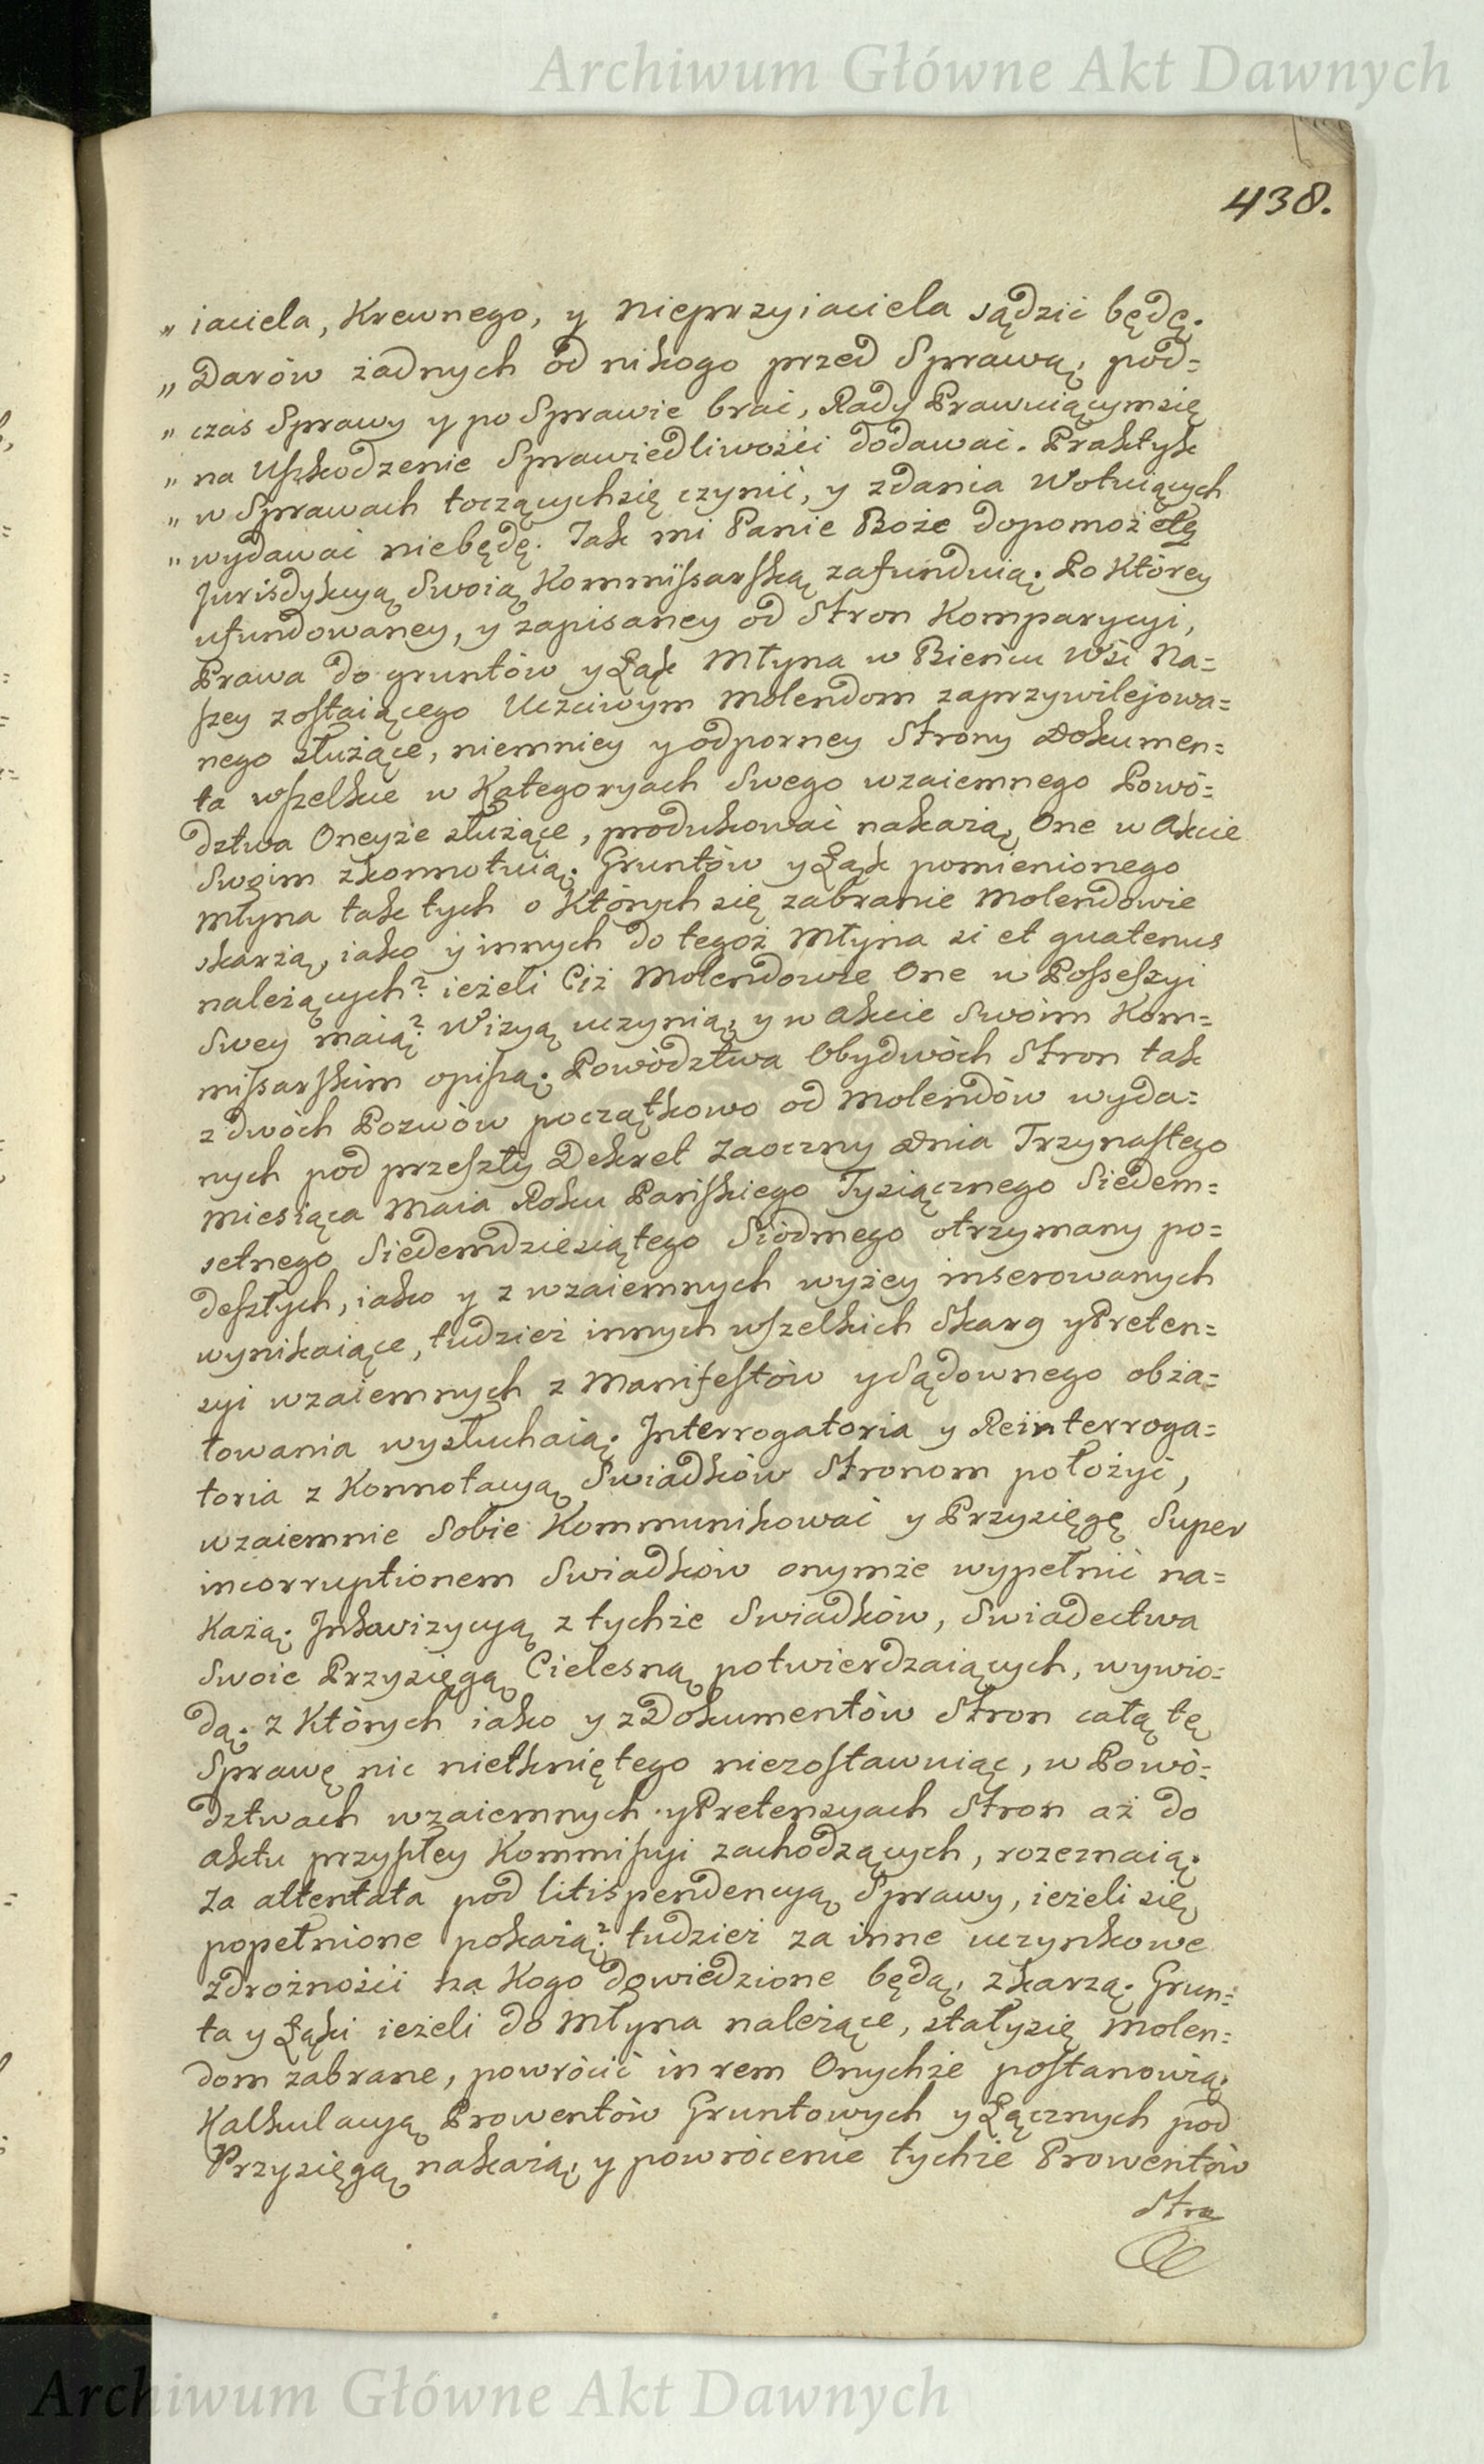 Archiwum Główne Akt Dawnych
438.
„ iaciela, Krewnego, y nieprzyiaciela sądzić będę.
„ Darów żadnych od nikogo przed Sprawą, pod=
„ czas Sprawy y po Sprawie brać, Rady Prawuiącymsię
„ na Uszkodzenie Sprawiedliwości dodawać. Praktyk
„ w Sprawach toczącychsię czynić, y zdania Wotuiących
„ wydawać niebędę. Tak mi Panie Boże dopomoż etę
Jurisdykcyą Swoią Kommissarską zafunduią. Po Którey
ufundowaney, y zapisaney od Stron Komparycyi,
Prawa do gruntów y Łąk Młyna w Bieńcu Wsi Na=
szey zostaiącego Uczciwym Molendom zaprzywilejowa=
nego służące, niemniey y odporney Strony Dokumen=
ta wszelkie w Kategoryach Swego wzaiemnego Powó=
dztwa Oneyże służące, produkować nakażą, One w Akcie
Swoim zkonnotuią. Gruntów y Łąk pomienionego
Młyna tak tych o Których się zabranie Molendowie
skarżą, iako y innych do tegoż Młyna si et quatenus
należących? ieżeli Ciż Molendowie One w Possessyi
Swey maią? Wizyą uczynią, y w Akcie Swoim Kom=
missarskim opiszą. Powództwa Obydwóch Stron tak
z dwóch Pozwów początkowo od Molendów wyda=
nych pod przeszły Dekret Zaoczny Dnia Trzynastego
Miesiąca Maia Roku Pańskiego Tysiącznego Siedem=
setnego Siedemdziesiątego Siódmego otrzymany po=
deszłych, iako y z wzaiemnych wyżey inserowanych
wynikaiące, tudzież innych wszelkich Skarg y Preten=
syi wzaiemnych z Manifestów y Sądownego obża=
łowania wysłuchaią. Interrogatoria y Reinterroga=
toria z Konnotacyą Swiadków Stronom położyć,
wzaiemnie Sobie Kommunikować y Przysięgę Super
incorruptionem Swiadków onymże wypełnić na=
każą. Inkwizycyą z tychże Swiadków, Swiadectwa
Swoie Przysięgą Cielesną potwierdzaiących, wywio=
dą. z Których iako y z Dokumentów Stron całą tę
Sprawę nic nietkniętego niezostawuiąc, w Powó=
dztwach wzaiemnych y Pretensyach Stron aż do
aktu przyszłey Kommissyi zachodzących, rozeznaią.
Za attentata pod litispendencyą Sprawy, ieżeli się
popełnione pokażą? tudzież za inne uczynkowe
zdrożności na Kogo dowiedzione będą, zkarzą. Grun=
ta y Łąki ieżeli do Młyna należące, stałysię Molen=
dom zabrane, powrócić in rem Onychże postanowią.
Kalkulacyą Prowentów Gruntowych y Łącznych pod
Przysięgą nakażą, y powrócenie tychże Prowentów
Stro
Archiwum Główne Akt Dawnych